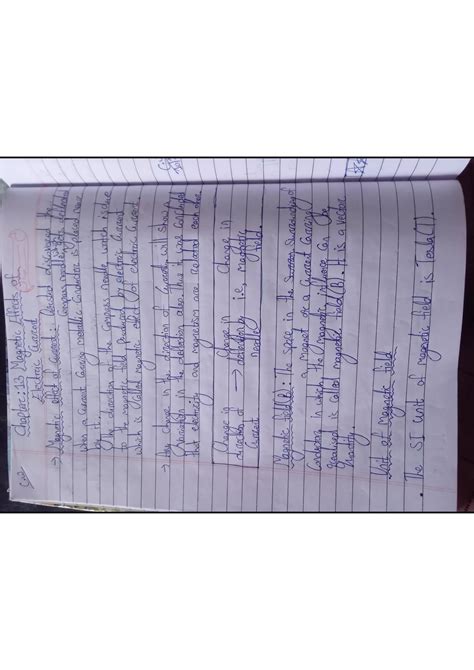 Chapter:13 Magnetic Effects of
Electric Current
→ Magnetic effect of Current: Oersted discovered that
Compass needle gets deflected
when a Current Carrying metallic Conductor is placed near
by it.
The deflection of the Compass needle which is due
to the magnetic field produced by electric Current
which is called magnetic effect of electric Current.
→ the change in the direction of Current will show a
Variation in the deflection also, thus it was Concluded
that electricity and magnetism are related each other
Change in
direction of
Current
→ Change in
deflection of
needle
i.e, change in
magnetic
field.
Magnetic field(B): The space in the surrounding
of a magnet or a Current Carrying
Conductor in which the magnetic influence Can be
is called magnetic field(B). It is a vector
Quantity.
Unit of Magnetic field
• The SI unit of magnetic field is Tesla(T).